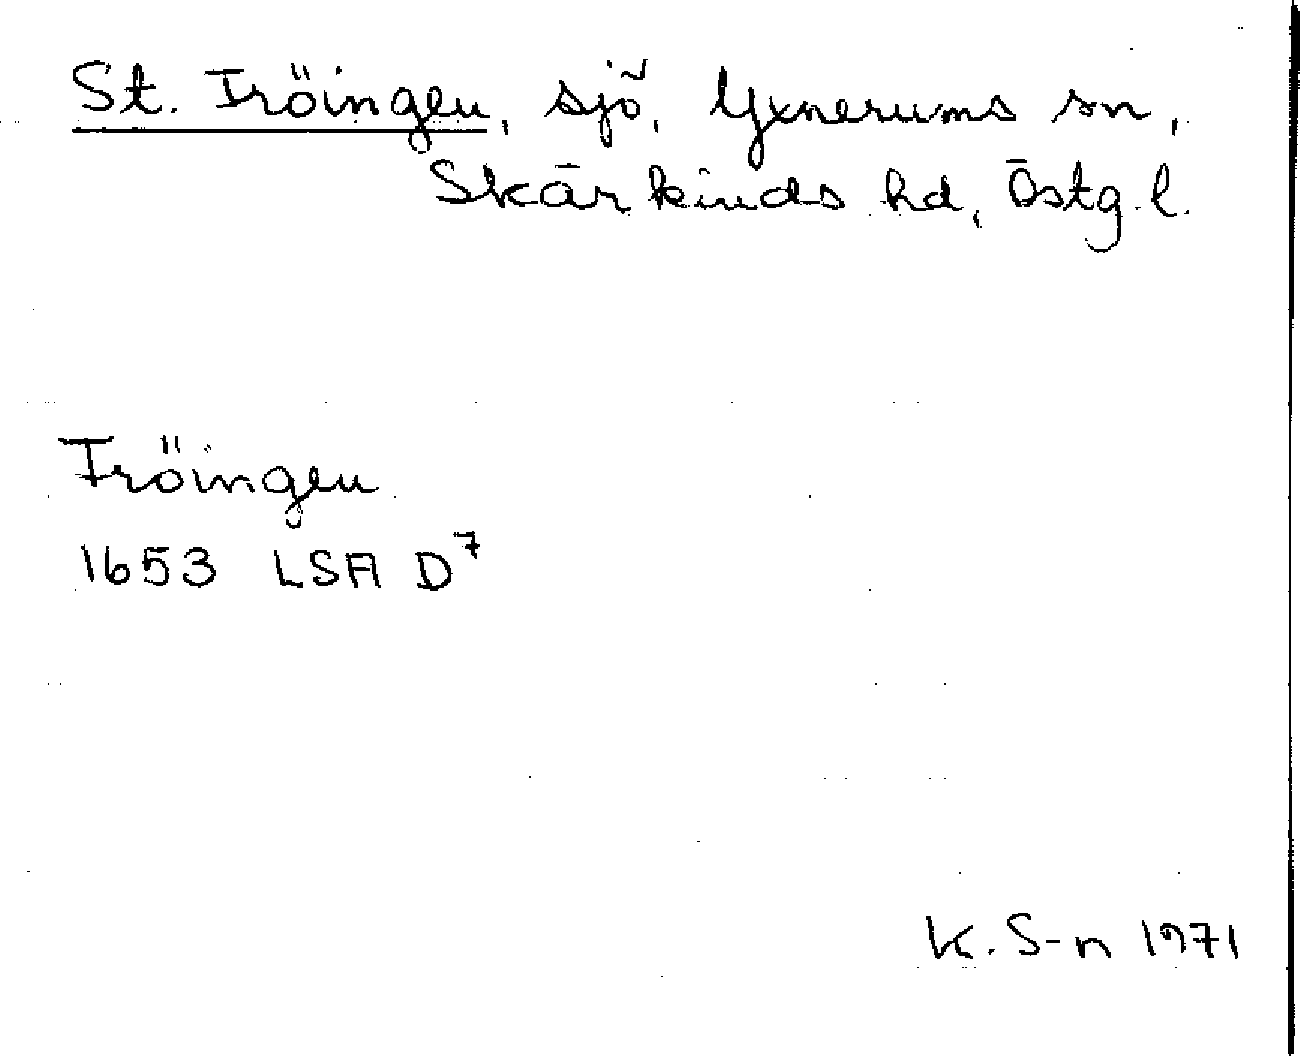 St. Tröingen, sjö, Yxnerums sn,
Skärkinds hd, Östg. l.
Tröingen
1653 LSA D7
K. S-n 1971